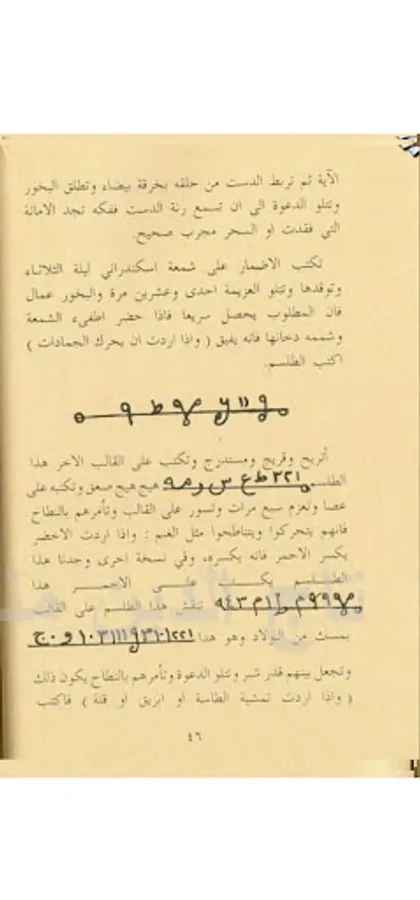 الآية ثم تربط الدست من حلقه بخرقة بيضاء وتطلق البخور
وتتلو الدعوة الى ان تسمع رنة الدست ففكه تجد الامانة
التي فقدت او السحر مجرب صحيح.
تكتب الاضمار على شمعة اسكندراني ليلة الثلاثاء
وتوقدها وتتلو العزيمة احدى وعشرين مرة والبخور عمال
فان المطلوب يحصل سريعا فاذا حضر اطفىء الشمعة
وشممه دخانها فانه يفيق ( واذا اردت ان يحرك الجمادات )
اكتب الطلسم.
أتريج وقريج ومستدرج وتكتب على القالب الاخر هذا
الطلسم ٣٢١ ط ع س و هيج هيج صعق وتكتبه على
عصا وتعزم سبع مرات وتسور على القالب وتأمرهم بالنطاح
فانهم يتحركوا ويتناطحوا مثل الغنم : واذا اردت الاخضر
يكسر الاحمر فانه يكسره، وفي نسخة اخرى وجدنا هذا
الطلسم يكسد على الاحمر هذا
تنقش هذا الطلسم على القالب
بمسك من البولاد وهو هذا
وتجعل بينهم قدر شبر وتتلو الدعوة وتأمرهم بالنطاح يكون ذلك
( واذا اردت تمشية الطاسة او ابريق او قلة ) فاكتب
٤٦